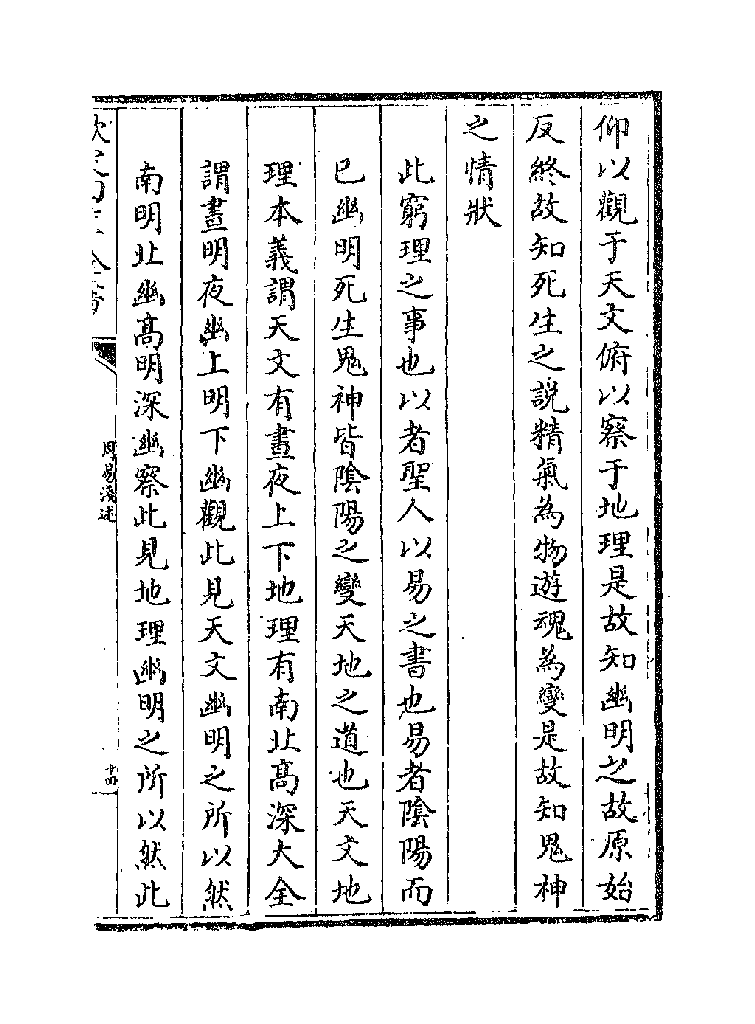 仰以觀于天文俯以察于地理是故知幽明之故原始
反終故知死生之說精氣為物遊魂為變是故知鬼神
之情狀
此窮理之事也以者聖人以易之書也易者陰陽而
已幽明死生鬼神皆陰陽之變天地之道也天文地
理本義謂天文有晝夜上下地理有南北高深大全
謂晝明夜幽上明下幽觀此見天文幽明之所以然
南明北幽高明深幽察此見地理幽明之所以然此
周易淺述
十四